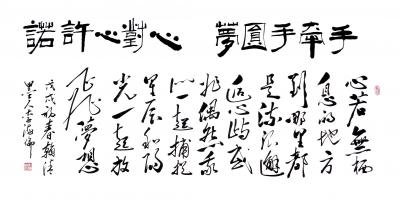 手牽手圓夢 心對心許諾
心若無栖
息的地方
到哪里都
是流浪邂
逅心屿或
非偶然我
们一起捕捉
星辰和陽
光一起放
飞夢想
戊戌初春